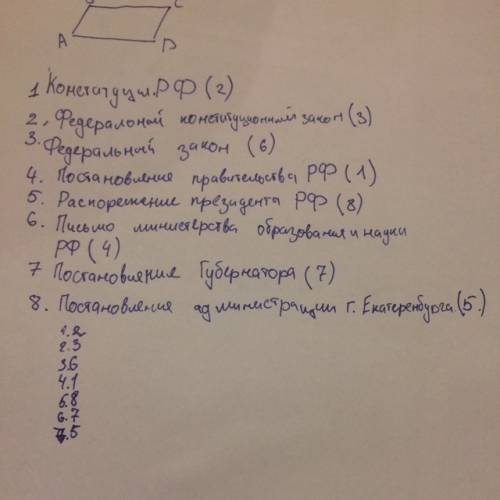 C
A D
1 Конституция РФ (2)
2. Федеральный конституционный закон (3)
3. Федеральный закон (6)
4. Постановление правительства РФ (1)
5. Распорежение президента РФ (8)
6. Письмо министерства образования и науки
РФ (4)
7 Постановление Губернатора (7)
8. Постановления администрации г. Екатеренбурга (5.)
1.2
2.3
3.6
4.1
6.8
6.7
7.5